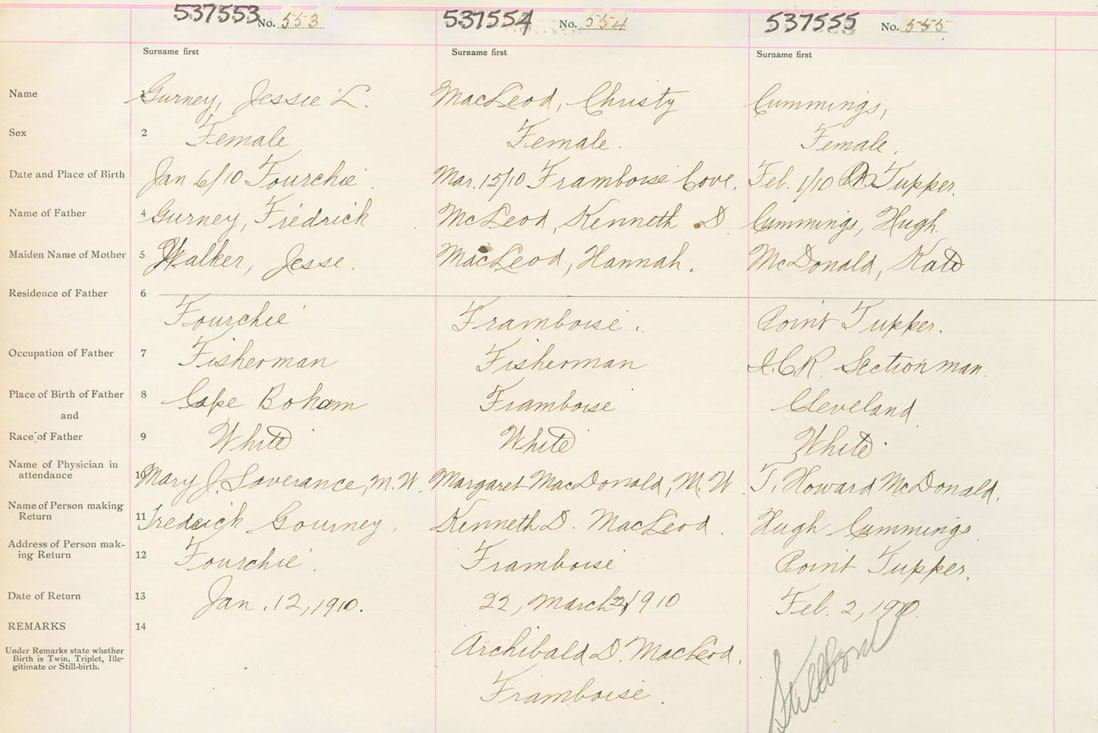 537553 No. 553 537554 No. 554 537555 No. 555
Surname first Surname first Surname first
Name 1 Gurney, Jessie L. MacLeod, Christy Cummings,
Sex 2 Female Female. Female.
Date and Place of Birth Jan 6/10 Fourchie. Mar. 15/10 Framboise Cove. Feb. 1/10 Tupper.
Name of Father 4 Gurney, Fredrick McLeod, Kenneth D Cummings, Hugh
Maiden Name of Mother 5 Walker, Jesse. MacLeod, Hannah. McDonald, Kate
Residence of Father 6
Fourchie Framboise. Point Tupper.
Occupation of Father 7 Fisherman Fisherman I.C.R. Section man.
Place of Birth of Father 8 Cape Boham Framboise Cleveland
and
Race of Father 9 White White White
Name of Physician in
attendance 10 Mary J. Loverance, M.W. Margaret MacDonald, M.W. T. Howard McDonald.
Name of Person making
Return 11 Fredrick Gourney. Kenneth D. MacLeod. Hugh Cummings
Address of Person mak-
ing Return 12 Fourchie. Framboise Point Tupper.
Date of Return 13 Jan. 12, 1910. 22, March 1910 Feb. 2, 1910.
REMARKS 14
Under Remarks state whether
Birth is Twin, Triplet, Ille-
gitimate or Still-birth.
Archibald D. MacLeod.
Framboise.
Stillborn